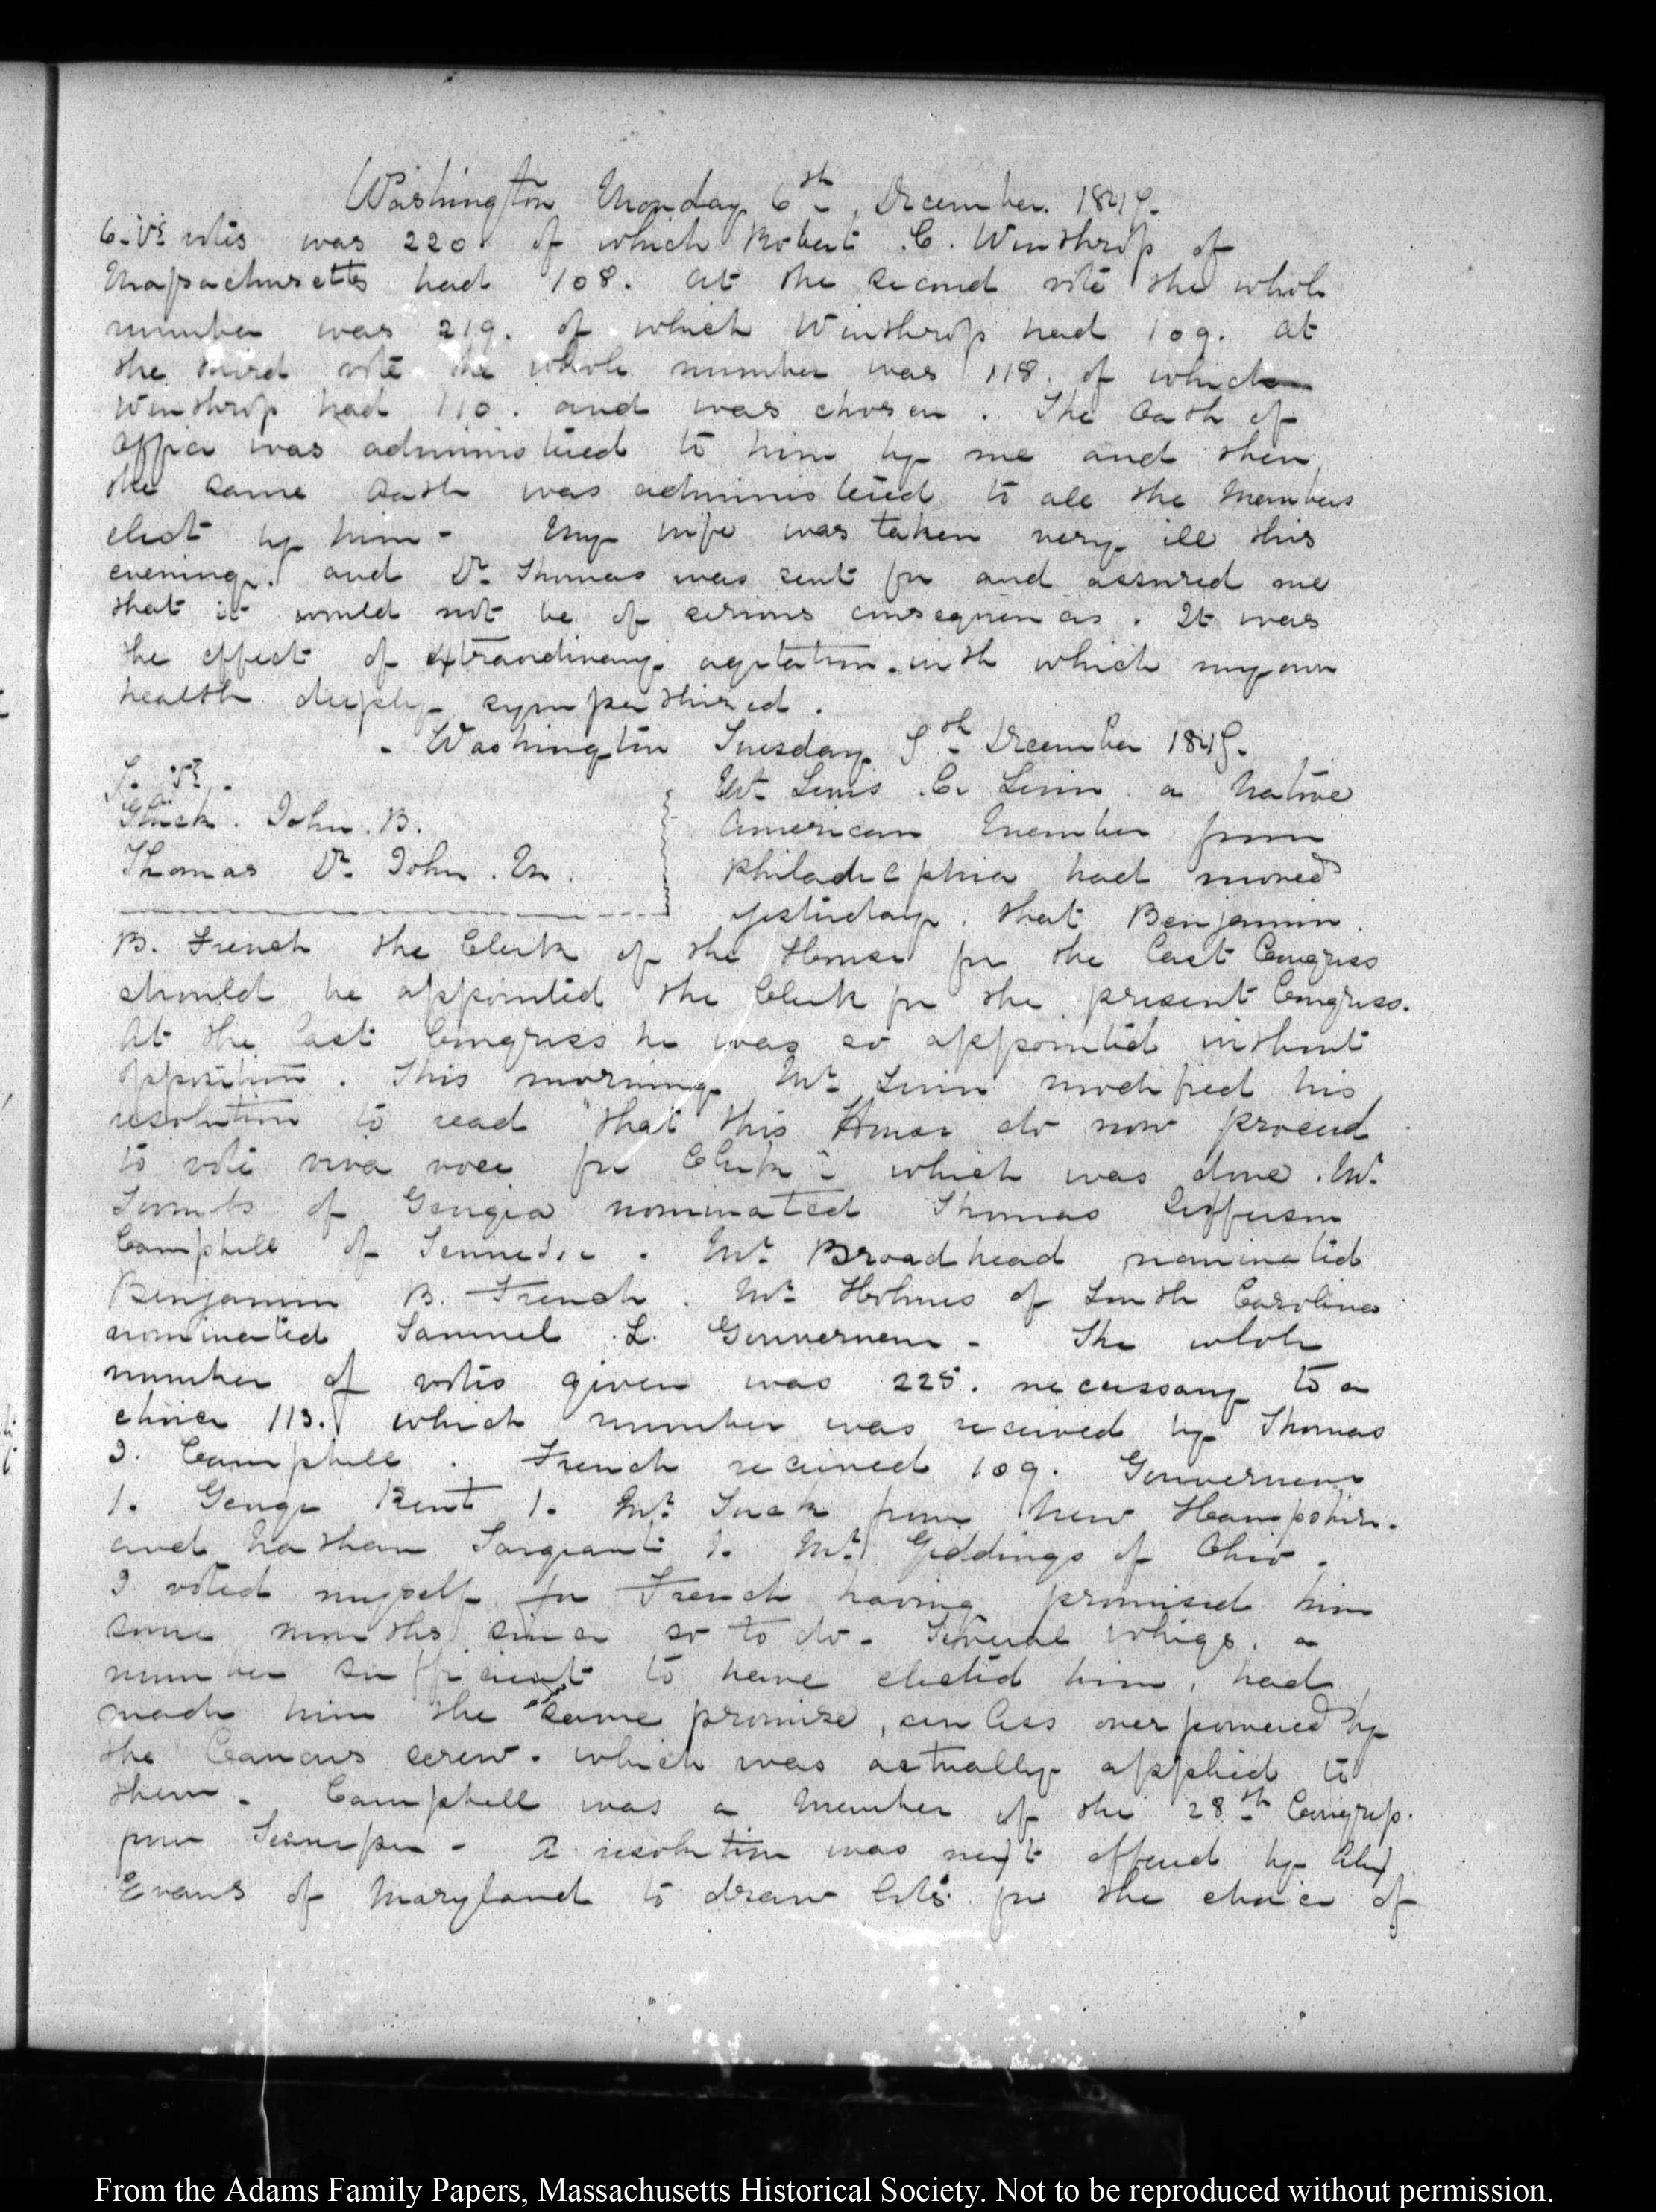 Washington Monday 6th December. 1847.
6. VI. votes was 220. of which Robert C. Winthrop of
Massachusetts had 108. At the second vote the whole
number was 219. of which Winthrop had 109. At
the third vote the whole number was 118. of which
Winthrop had 110. and was chosen. The Oath of
Office was administered to him by me and then
the same Oath was administered to all the Members
elect by him - My wife was taken very ill this
evening. and Dr. Thomas was sent for and assured me
that it would not be of serious consequences. It was
the effect of extraordinary agitation with which my own
health deeply sympathized.
- Washington Tuesday 7th December 1847.
7. VI.
John. B.
Thomas Dr. John. M.
Mr. Lewis C. Levin a Native
American Member from
Philadelphia had moved
yesterday. that Benjamin.
B. French the Clerk of the House for the last Congress
should be appointed the Clerk for the present Congress.
At the last Congress he was so appointed without
opposition. This morning Mr. Levin modified his
resolution to read "that this House do now proceed
to vote viva voce for Clerk" which was done. Mr.
Toombs of Georgia nominated Thomas Jefferson
Campbell of Tennessee. Mr. Broadhead nominated
Benjamin B. French. Mr. Holmes of South Carolina
nominated Samuel L. Gouverneur - The whole
number of votes given was 225. necessary to a
choice 113. which number was received by Thomas
J. Campbell. French received 109. Gouverneur
1. George Kent 1. Mr. Tuck from New Hampshire.
and Nathan Sargeant 1. Mr. Giddings of Ohio.
I voted myself for French having promised him
some months since so to do. Several Whigs. a
number sufficient to have elected him, had
made him the same promise, unless over powered by
the Caucus screw. which was actually applied to
them. Campbell was a Member of the 28th Congress.
from Tennessee - A resolution was next offered by Alex
Evans of Maryland to draw lots for the choice of
From the Adams Family Papers, Massachusetts Historical Society. Not to be reproduced without permission.